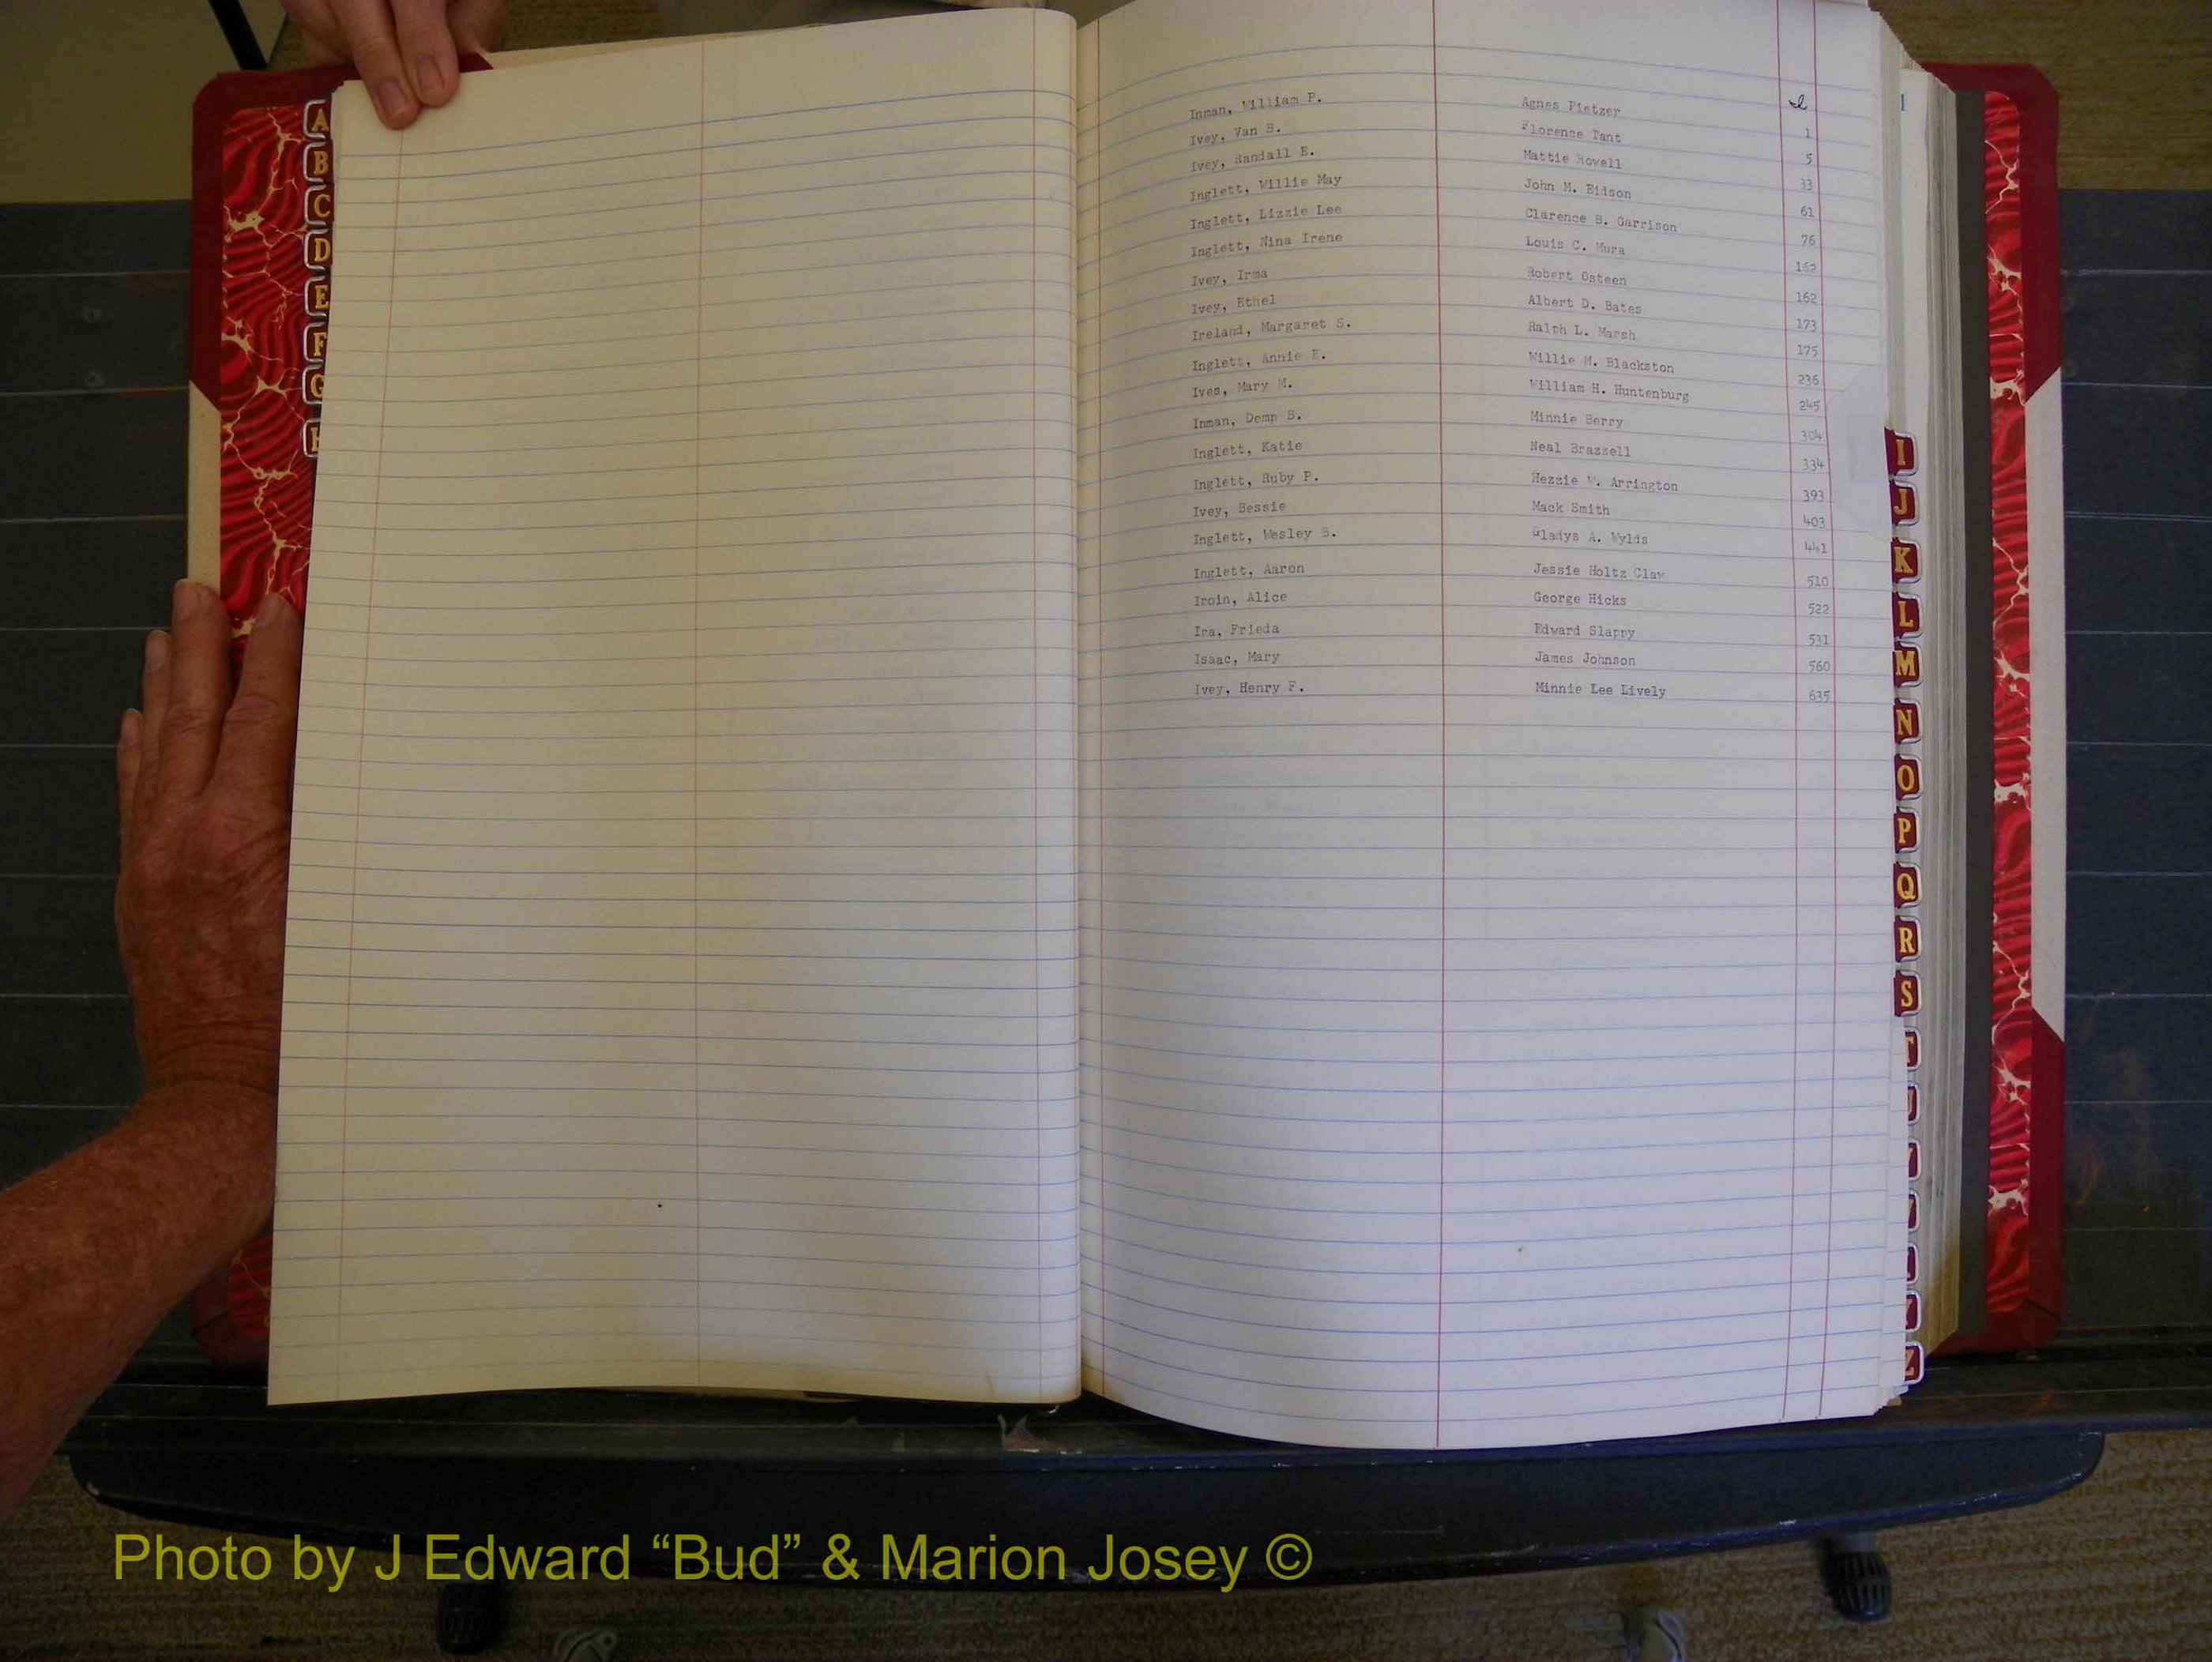 A
B
C
D
E
F
G
I
Inman, William P. Agnes Pietzer 1
Ivey, Van B. Florence Tant 5
Ivey, Randall E. Mattie Rowell 33
Inglett, Willie May John M. Eidson 61
Inglett, Lizzie Lee Clarence B. Garrison 76
Inglett, Nina Irene Louis C. Mura 162
Ivey, Irma Robert Osteen 162
Ivey, Ethel Albert D. Bates 173
Ireland, Margaret S. Ralph L. Marsh 175
Inglett, Annie E. Willie M. Blackston 236
Ives, Mary M. William H. Huntenburg 245
Inman, Demp B. Minnie Berry 304
Inglett, Katie Neal Brazzell 334
Inglett, Ruby P. Hezzie W. Arrington 393
Ivey, Bessie Mack Smith 403
Inglett, Wesley B. Gladys A. Wylds 441
Inglett, Aaron Jessie Holtz Claw 510
Iroin, Alice George Hicks 522
Ira, Frieda Edward Slappy 531
Isaac, Mary James Johnson 560
Ivey, Henry F. Minnie Lee Lively 635
I
J
K
L
M
N
O
P
Q
R
S
T
U
V
W
X
Y
Z
Photo by J Edward “Bud” & Marion Josey ©